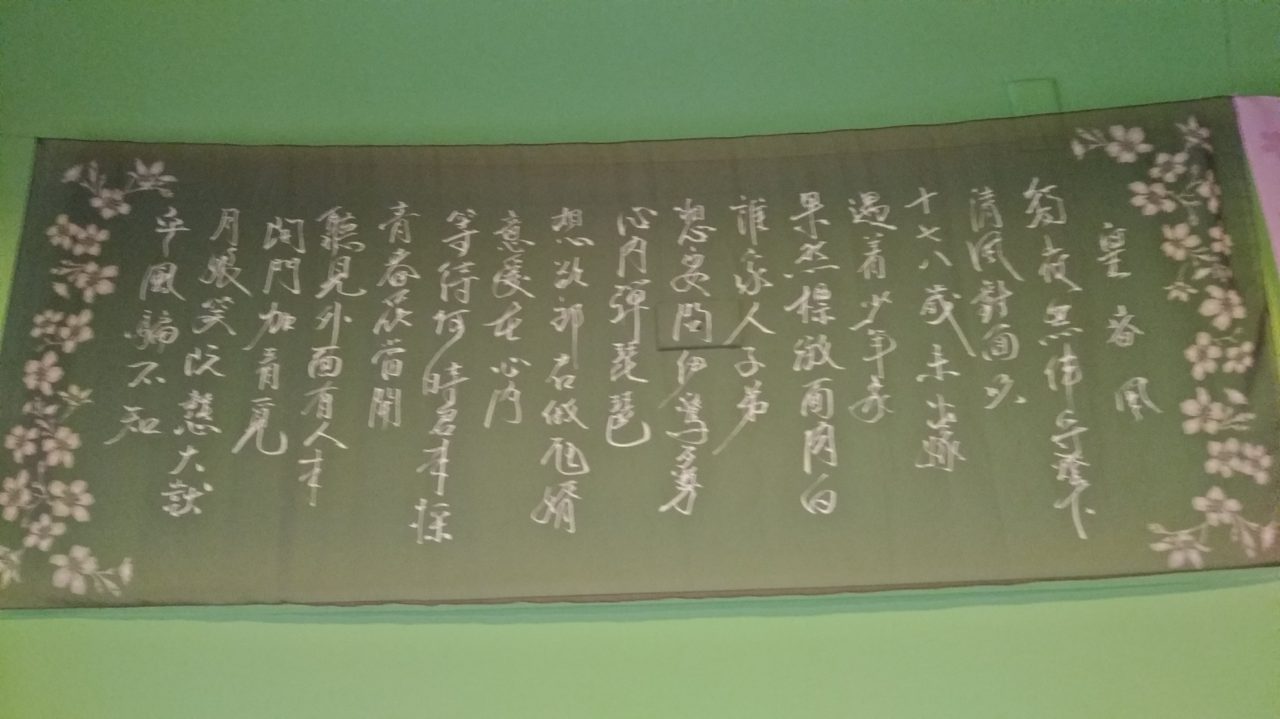 望春風
獨夜無伴守燈下
清風對面吹
十七八歲未出嫁
遇着少年家
果然標緻面肉白
誰家人子弟
想要問伊驚歹勢
心內彈琵琶
想欲郎君做尪婿
意愛在心內
等待何時君來採
青春花當開
聽見外面有人來
開門加看覓
月娘笑阮憨大獃
乎風騙不知